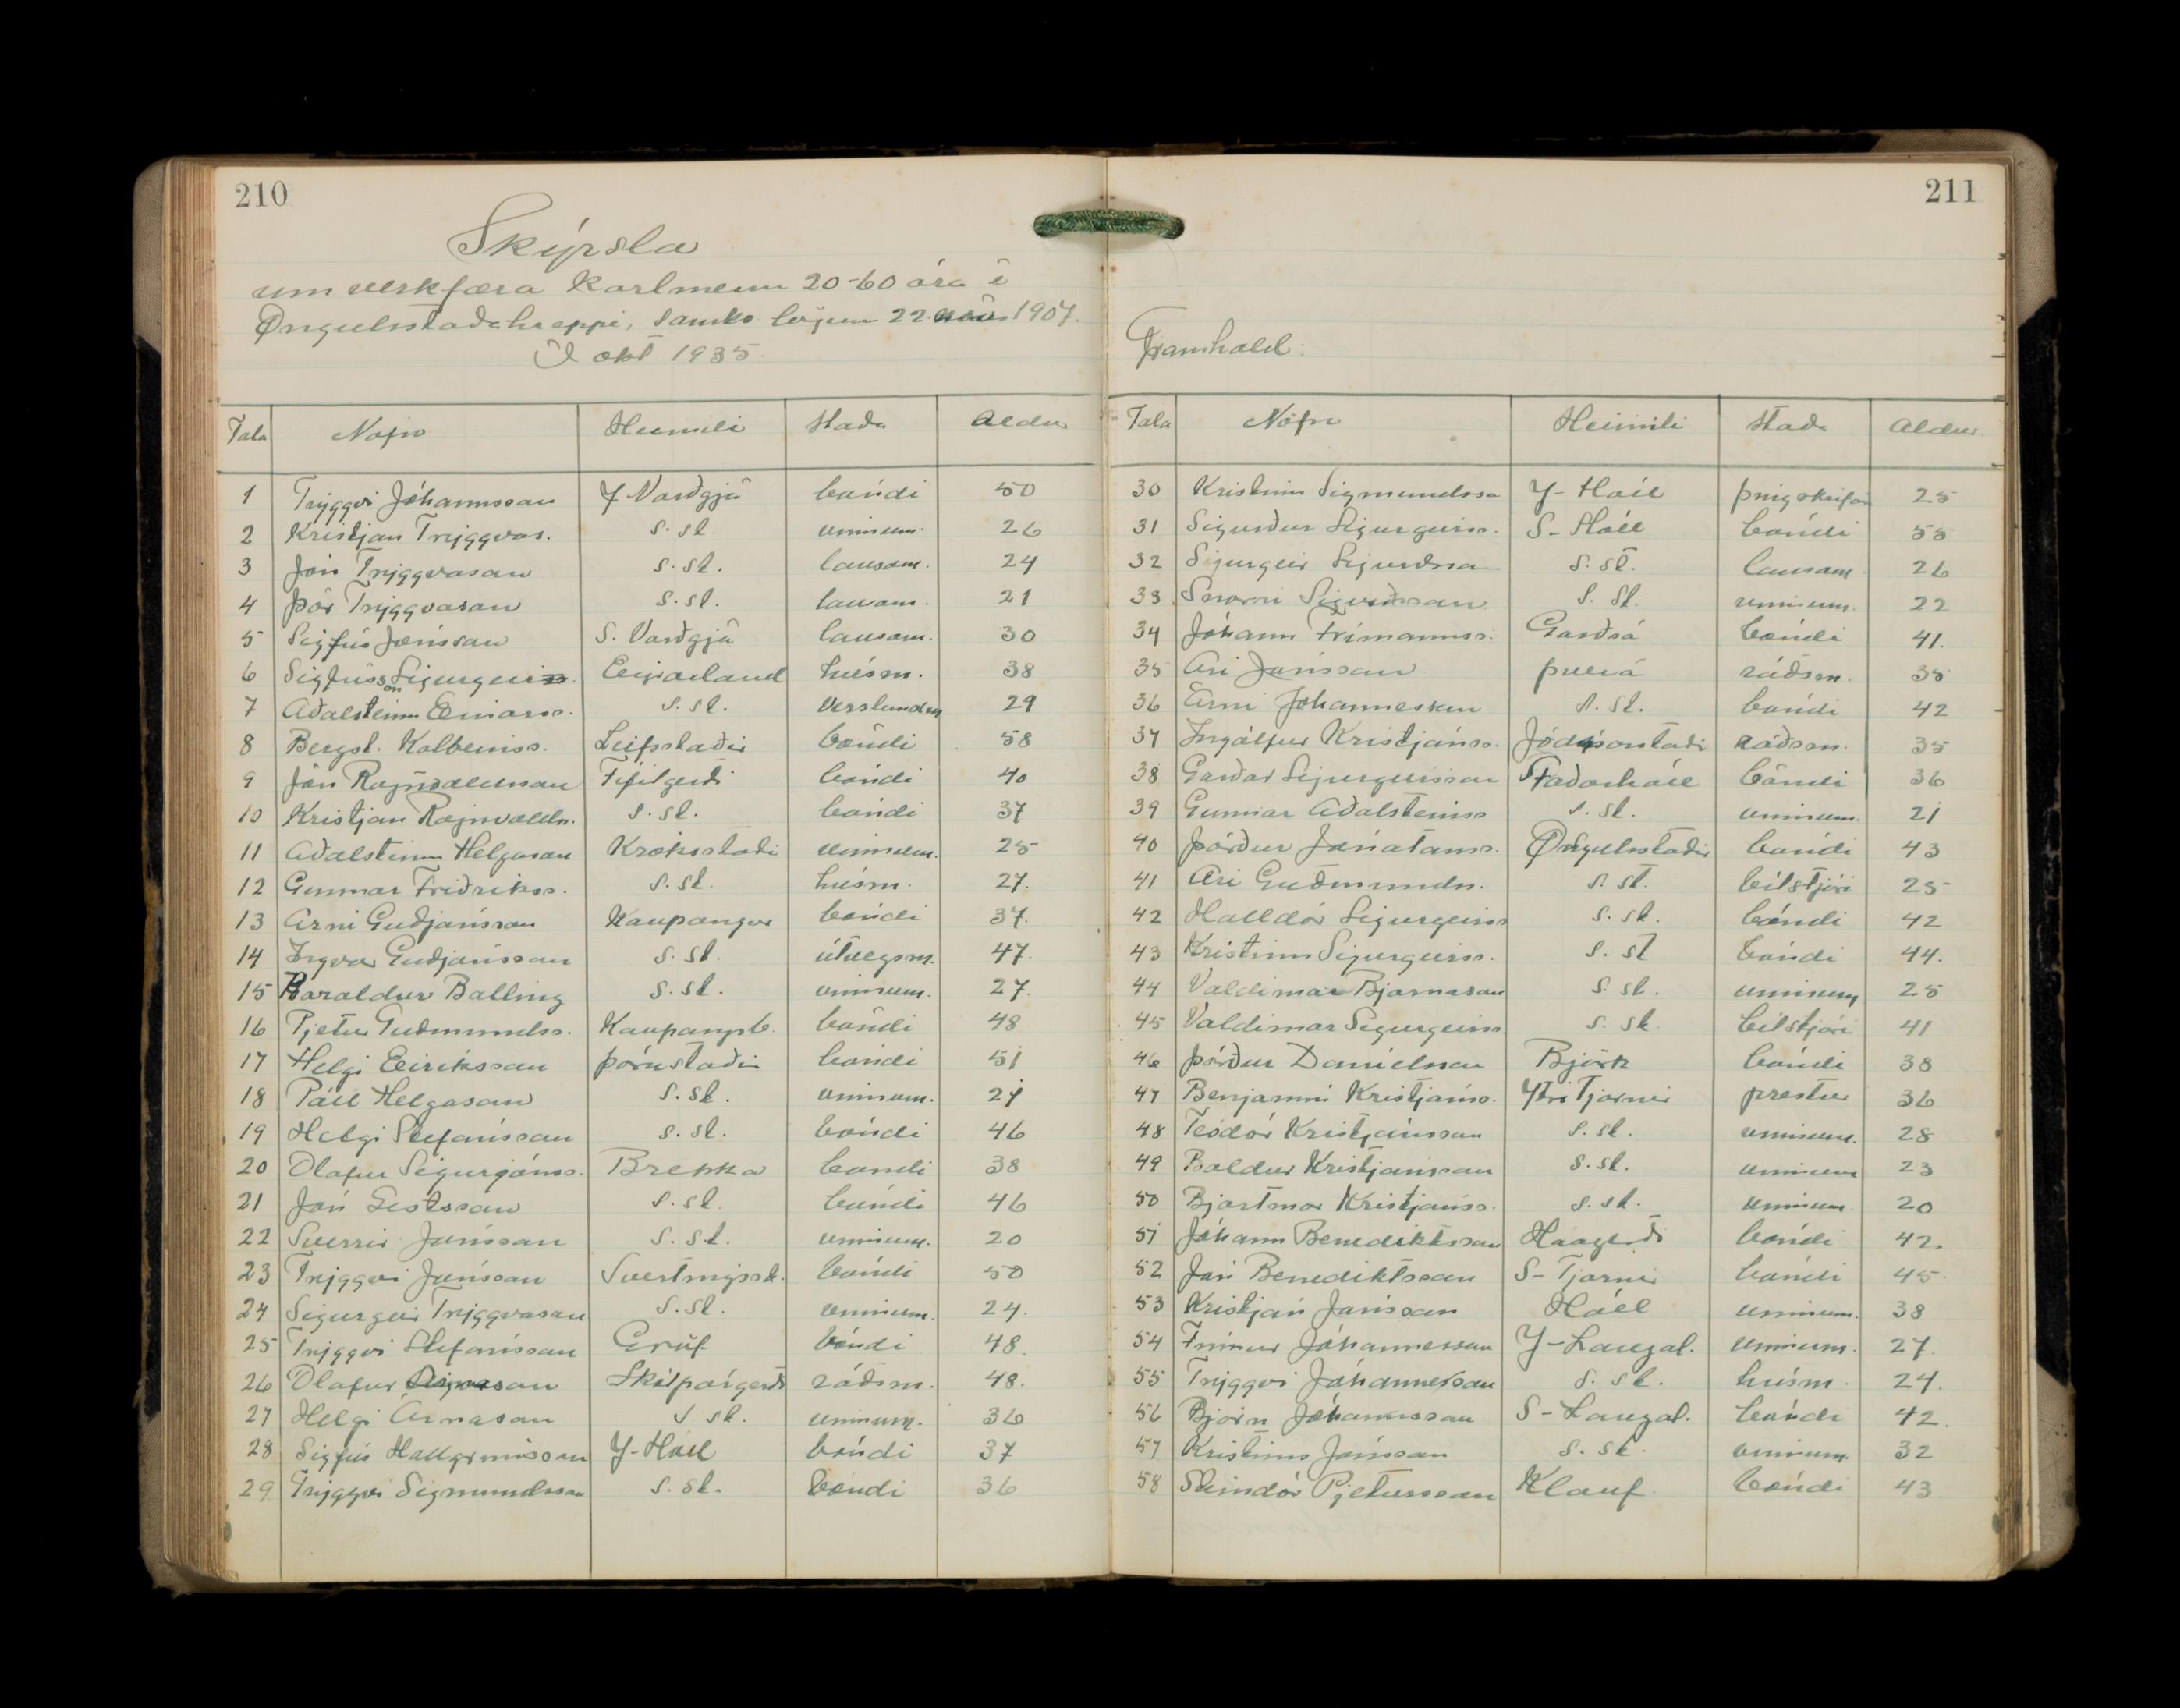 210
Skýrsla
um verkfæra karlmenn 20-60 ára í
Öngulsstaðahreppi, samkv. lögum 22. nóv. 1907.
Í okt 1935.
Tala Nöfn Heimili Staða Aldur
1 Tryggvi Jóhannsson Y Varðgjá bóndi 50
2 Kristján Tryggvas. s. st. vinnum. 26
3 Jón Tryggvason s. st. lausam. 24
4 Þór Tryggvason s. st. lausam. 21
5 Sigfús Jónsson S. Varðgjá lausam. 30
6 Sigfús Sigurgeirss. Eyrarland húsm. 38
7 Aðalsteinn Einarss. s. st. verslunarm 29
8 Bergst. Kolbeinss. Leifsstaðir bóndi 58
9 Jón Rögnvaldsson Fífilgerði bóndi 40
10 Kristján Rögnvalds. s. st. bóndi 37
11 Aðalsteinn Helgason Króksstaði vinnum. 25
12 Gunnar Friðrikss. s. st. húsm. 27.
13 Árni Guðjónsson Kaupangur bóndi 37.
14 Ingvar Guðjónsson s. st. útvegsm. 47.
15 Haraldur Balling s. st. vinnum. 27.
16 Pjetur Guðmundss. Kaupangsb. bóndi 48
17 Helgi Eiríksson Þórustaðir bóndi 51
18 Páll Helgason s. st. vinnum. 21
19 Helgi Stefánsson s. st. bóndi 46
20 Ólafur Sigurjónss. Brekka bóndi 38
21 Jón Gestsson s. st. bóndi 46
22 Sverrir Jónsson s. st. vinnum. 20
23 Tryggvi Jónsson Svertingsst. bóndi 50
24 Sigurgeir Tryggvason s. st. vinnum. 24.
25 Tryggvi Stefánsson Gróf bóndi 48.
26 Ólafur Skálpagerði ráðsm. 48.
27 Helgi Árnason s. st. vinnum. 36
28 Sigfús Hallgrímsson Y-Hóll bóndi 37
29 Tryggvi Sigmundsson s. st. bóndi 36
211
Framhald:
Tala Nöfn Heimili Staða Aldur
30 Kristinn Sigmundsso Y-Hóll þingskrifari 25
31 Sigurður Sigurgeirss. S-Hóll bóndi 55
32 Sigurgeir Sigurðsso s. st. lausam 26
33 Snorri Sigurðsson s. st. vinnum. 22
34 Jóhann Frímannss. Garðsá bóndi 41.
35 Ari Jónsson Þverá ráðsm. 35
36 Árni Jóhannesson s. st. bóndi 42
37 Ingólfur Kristjánss. Jódísarstaði ráðsm. 35
38 Garðar Sigurgeirsson Staðarhóll bóndi 36
39 Gunnar Aðalsteinss s. st. vinnum. 21
40 Þórður Jónatanss. Öngulsstaðir bóndi 43
41 Ari Guðmunds. s. st. bílstjóri 25
42 Halldór Sigurgeirss s. st. bóndi 42
43 Kristinn Sigurgeirss. s. st bóndi 44.
44 Valdimar Bjarnason s. st. vinnum 25
45 Valdimar Sigurgeirss s. st. bílstjóri 41
46 Þórður Daníelsson Björk bóndi 38
47 Benjamín Kristjánss. Ytri Tjarnir prestur 36
48 Teódór Kristjánsson s. st. vinnum. 28
49 Baldur Kristjánsson s. st. vinnum 23
50 Bjartmar Kristjánss. s. st. vinnum 20
51 Jóhann Benediktsson Háagerði bóndi 42.
52 Jón Benediktsson S-Tjarnir bóndi 45
53 Kristján Jónsson Hóll vinnum. 38
54 Frímann Jóhannesson Y-Laugal. vinnum. 27.
55 Tryggvi Jóhannesson s. st. húsm. 24.
56 Björn Jóhannsson S-Laugal. bóndi 42.
57 Kristinn Jónsson s. st. vinnum. 32
58 Steindór Pjetursson Klauf bóndi 43